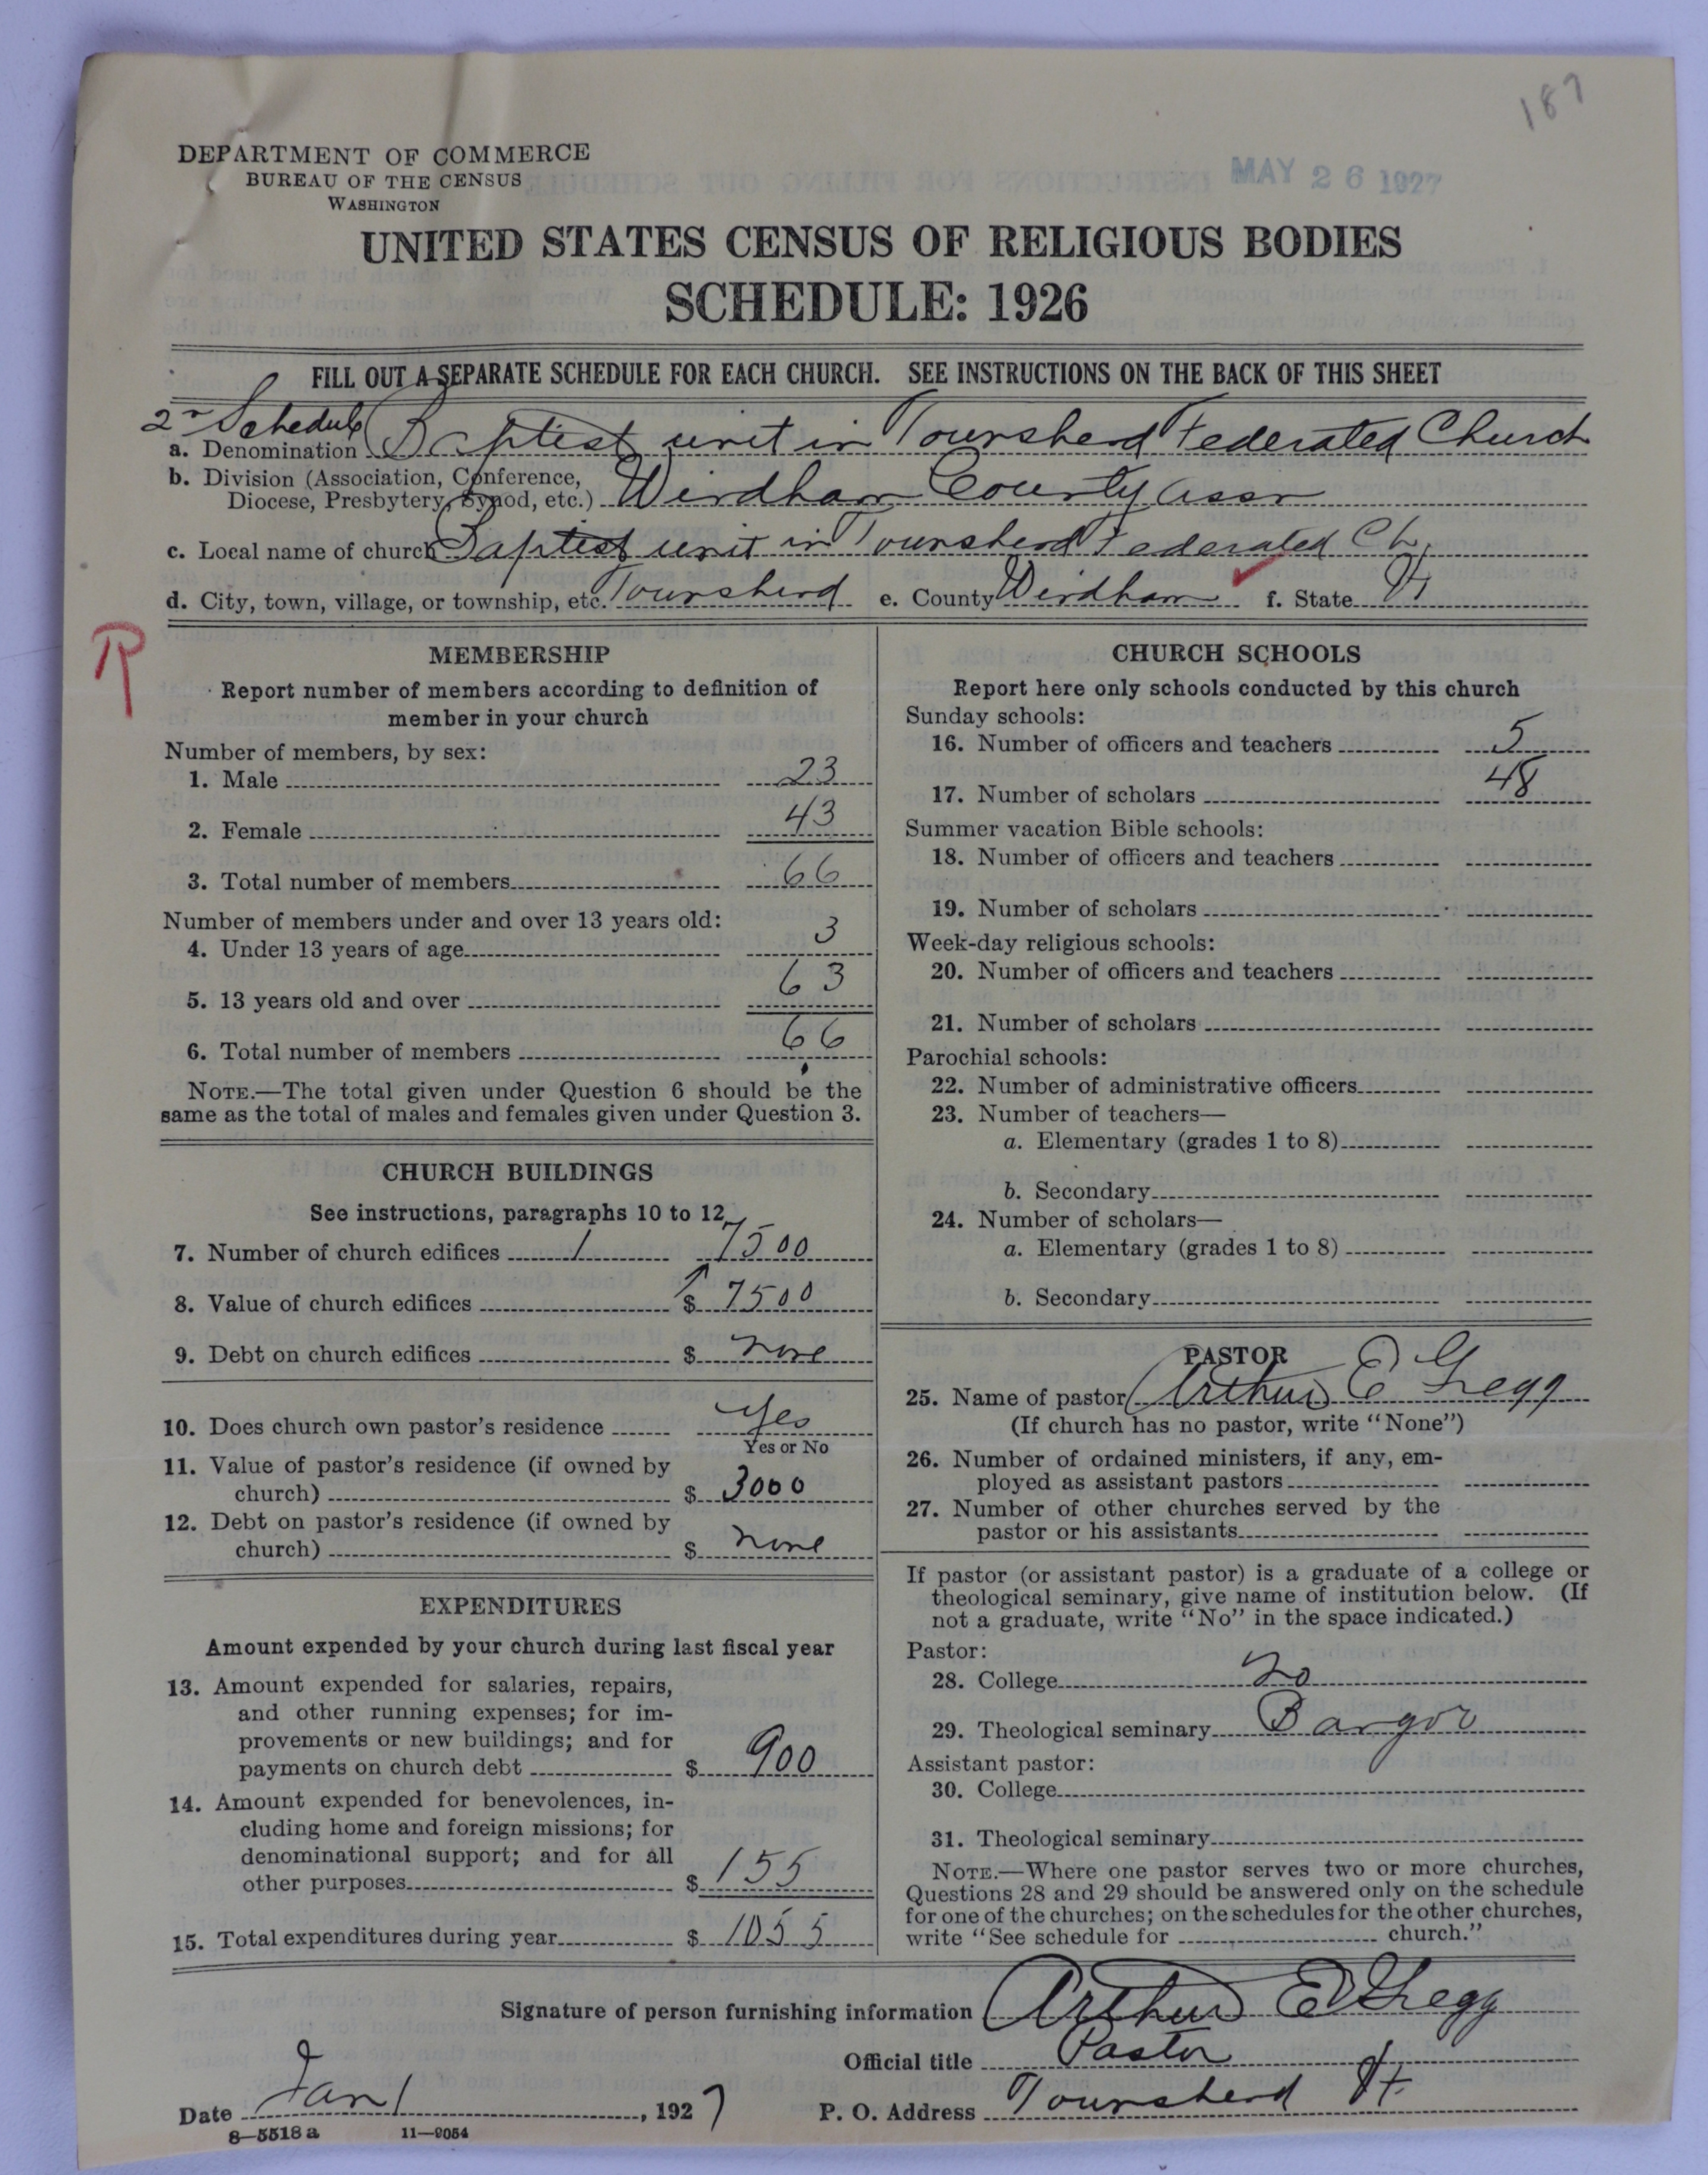 187
DEPARTMENT OF COMMERCE
BUREAU OF THE CENSUS
WASHINGTON
MAY 26 1927
UNITED STATES CENSUS OF RELIGIOUS BODIES
SCHEDULE: 1926
FILL OUT A SEPARATE SCHEDULE FOR EACH CHURCH. SEE INSTRUCTIONS ON THE BACK OF THIS SHEET
2nd Schedule
a. Denomination Baptist unit in Townshend Federated Church
b. Division (Association, Conference,
Diocese, Presbytery, Synod, etc.) Windham County Assn
c. Local name of church Baptist unit in Townshend Federated Ch.
d. City, town, village, or township, etc. Townshend e. County Windham f. State Vt
R
MEMBERSHIP
Report number of members according to definition of
member in your church
Number of members, by sex:
1. Male 23
2. Female 43
3. Total number of members 66
Number of members under and over 13 years old:
4. Under 13 years of age 3
5. 13 years old and over 63
6. Total number of members 66
NOTE.—The total given under Question 6 should be the
same as the total of males and females given under Question 3.
CHURCH BUILDINGS
See instructions, paragraphs 10 to 12
7. Number of church edifices 1 7500
8. Value of church edifices $ 7500
9. Debt on church edifices $ none
10. Does church own pastor's residence Yes
Yes or No
11. Value of pastor's residence (if owned by
church) $ 3000
12. Debt on pastor's residence (if owned by
church) $ none
EXPENDITURES
Amount expended by your church during last fiscal year
13. Amount expended for salaries, repairs,
and other running expenses; for im-
provements or new buildings; and for
payments on church debt $ 900
14. Amount expended for benevolences, in-
cluding home and foreign missions; for
denominational support; and for all
other purposes $ 155
15. Total expenditures during year $ 1055
CHURCH SCHOOLS
Report here only schools conducted by this church
Sunday schools:
16. Number of officers and teachers 5
17. Number of scholars 48
Summer vacation Bible schools:
18. Number of officers and teachers
19. Number of scholars
Week-day religious schools:
20. Number of officers and teachers
21. Number of scholars
Parochial schools:
22. Number of administrative officers
23. Number of teachers—
a. Elementary (grades 1 to 8)
b. Secondary
24. Number of scholars—
a. Elementary (grades 1 to 8)
b. Secondary
PASTOR
25. Name of pastor Arthur E Gregg
(If church has no pastor, write "None")
26. Number of ordained ministers, if any, em-
ployed as assistant pastors
27. Number of other churches served by the
pastor or his assistants
If pastor (or assistant pastor) is a graduate of a college or
theological seminary, give name of institution below. (If
not a graduate, write "No" in the space indicated.)
Pastor:
28. College no
29. Theological seminary Bangor
Assistant pastor:
30. College
31. Theological seminary
NOTE.—Where one pastor serves two or more churches,
Questions 28 and 29 should be answered only on the schedule
for one of the churches; on the schedules for the other churches,
write "See schedule for church."
Signature of person furnishing information Arthur E Gregg
Official title Pastor
Date Jan 1, 1927 P. O. Address Townshend Vt.
8—5518a 11—9054